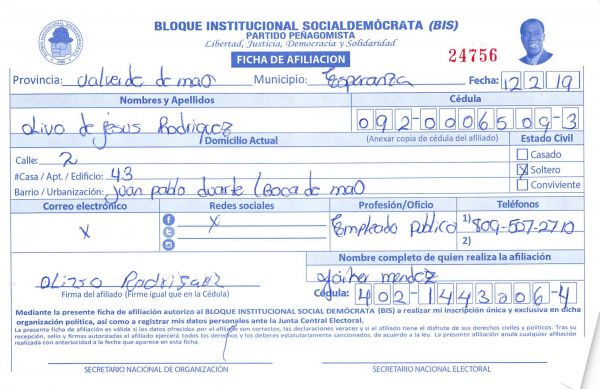 BLOQUE INSTITUCIONAL SOCIALDEMÓCRATA (BIS)
PARTIDO PEÑAGOMISTA
Libertad, Justicia, Democracia y Solidaridad
FICHA DE AFILIACION
24756
Provincia: Valverde de mao Municipio: Esperanza Fecha: 12 2 19
Nombres y Apellidos Cédula
Olivo de jesus Rodriguez 092-0006509-3
Domicilio Actual (Anexar copia de cédula del afiliado) Estado Civil
Calle: 2 Casado
#Casa / Apt. / Edificio: 43 X Soltero
Barrio / Urbanización: Juan pablo duarte (Boca de mao Conviviente
Correo electrónico Redes sociales Profesión/Oficio Teléfonos
X X Empleado publico 1) 809-557-2710
2)
Nombre completo de quien realiza la afiliación
Rodriguez mendez
Firma del afiliado (Firme igual que en la Cédula) Cédula: 402-1443206-4
Mediante la presente ficha de afiliación autorizo al BLOQUE INSTITUCIONAL SOCIAL DEMÓCRATA (BIS) a realizar mi inscripción única y exclusiva en dicha
organización política, así como a registrar mis datos personales ante la Junta Central Electoral.
La presente ficha de afiliación es válida si los datos ofrecidos por el afiliado son correctos, las declaraciones veraces y si el afiliado tiene el disfrute de sus derechos civiles y políticos. Tras su
recepción, sello y firmas autorizadas el afiliado ejercerá todos los derechos y los deberes estatutariamente sancionados, de acuerdo a la ley. La presente afiliación anula cualquier afiliación
realizada con anterioridad a la fecha que aparece en esta ficha.
SECRETARIO NACIONAL DE ORGANIZACIÓN SECRETARIO NACIONAL ELECTORAL